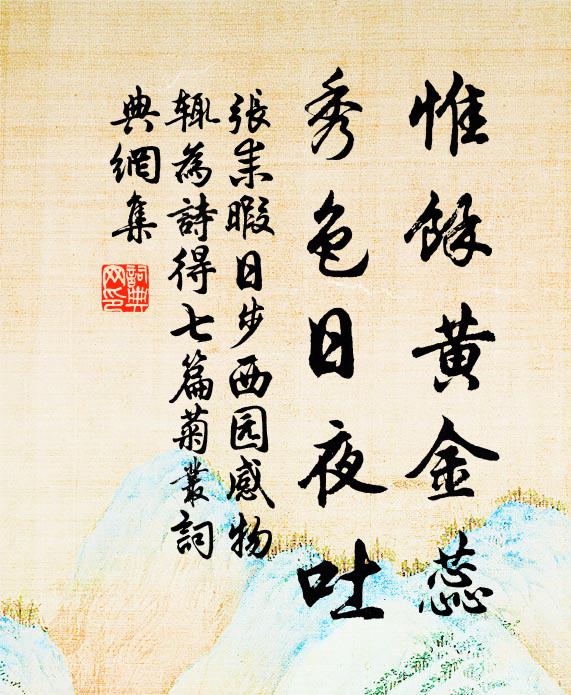 惟餘黃金蕊
秀色日夜吐
張耒暇日步西园感物
輒為詩得七篇菊叢詞
典網集
詞典
网印